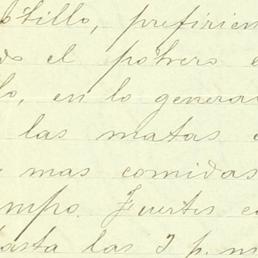 ostillo, prefirien
do el potrero e
lo, en lo genera
las matas e
mas comidas
mpo. Fuertes c
hasta las 3 p. m